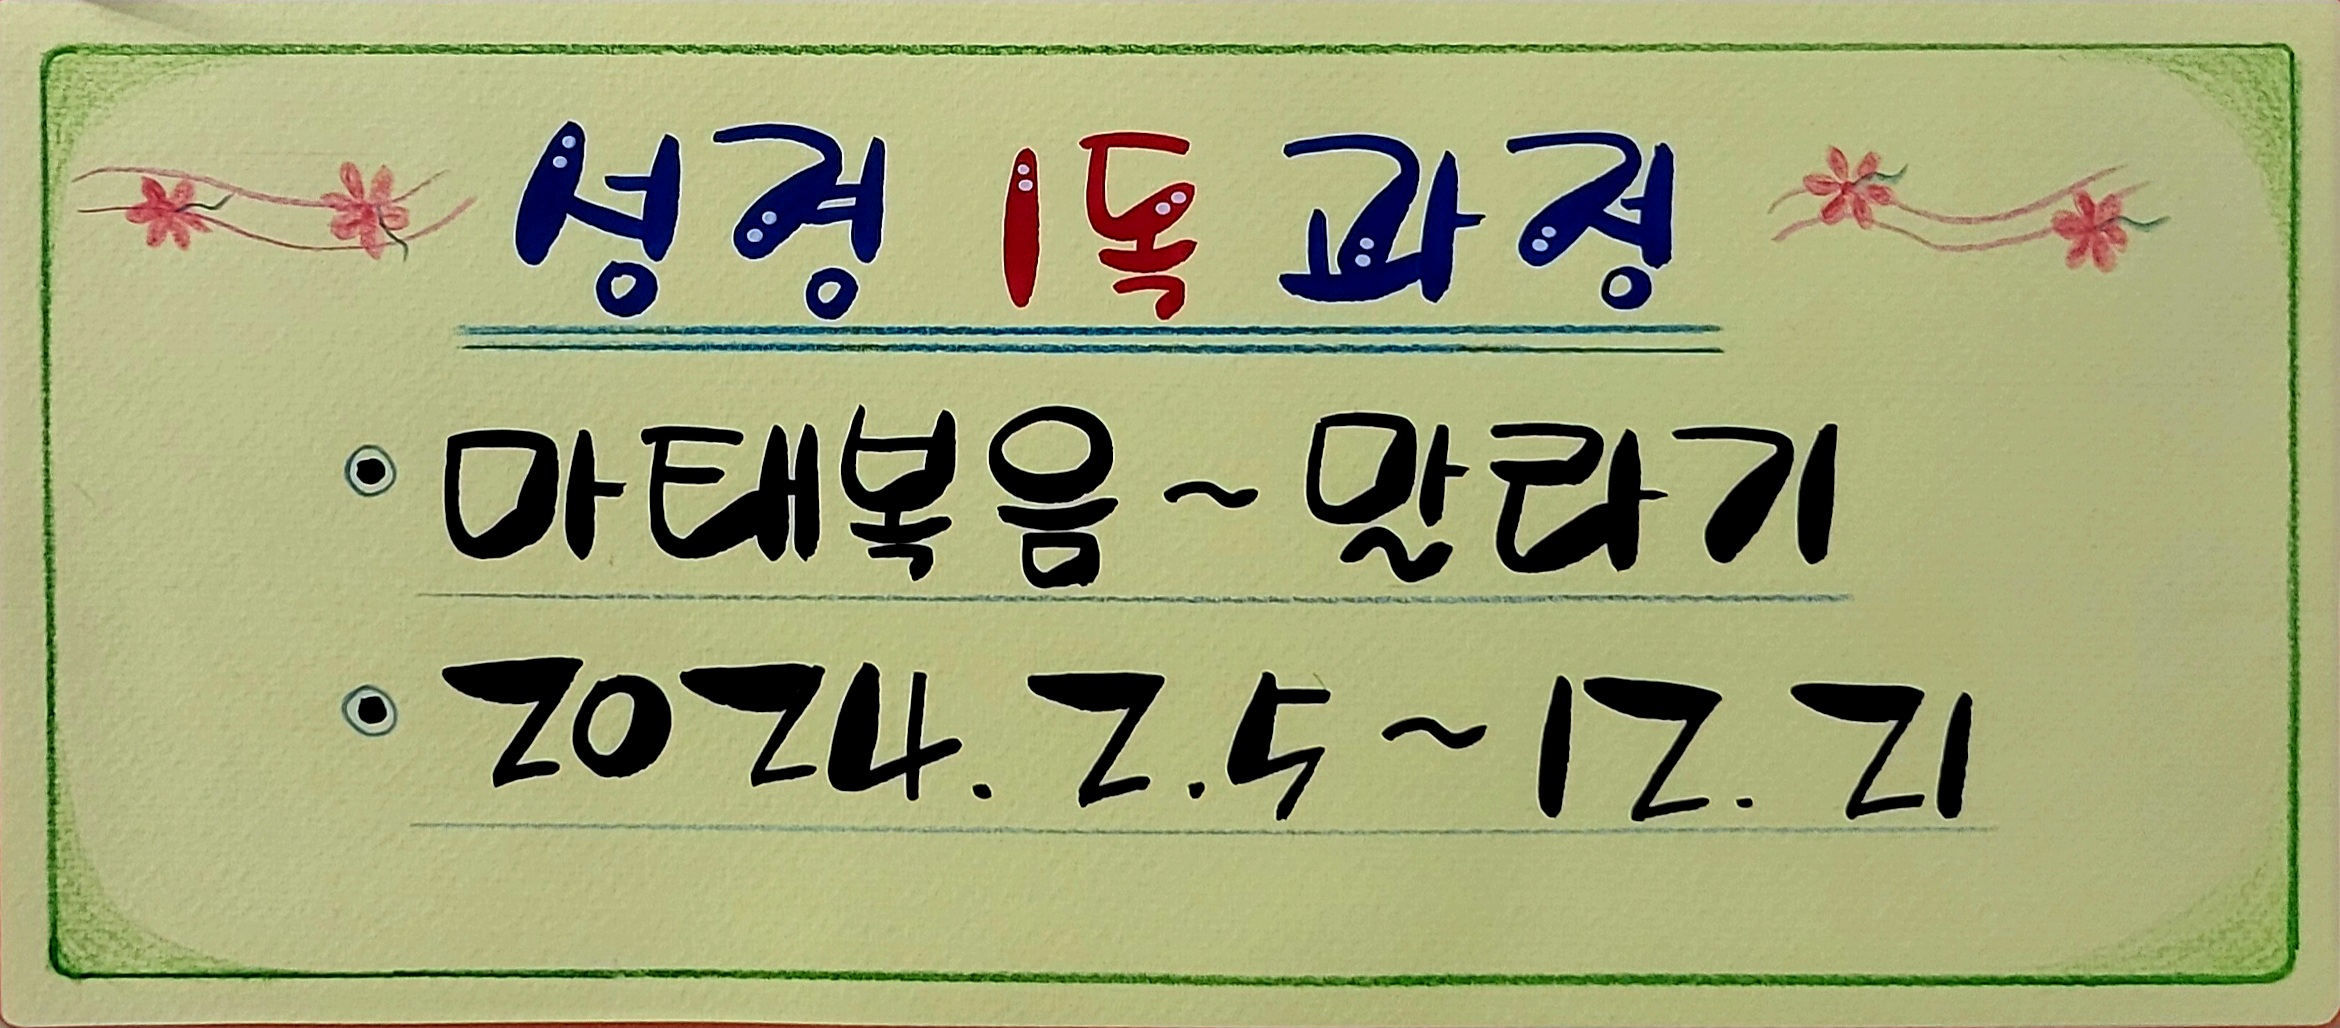 성경 1독 과정
마태복음~말라기
2024. 2.5~12. 21